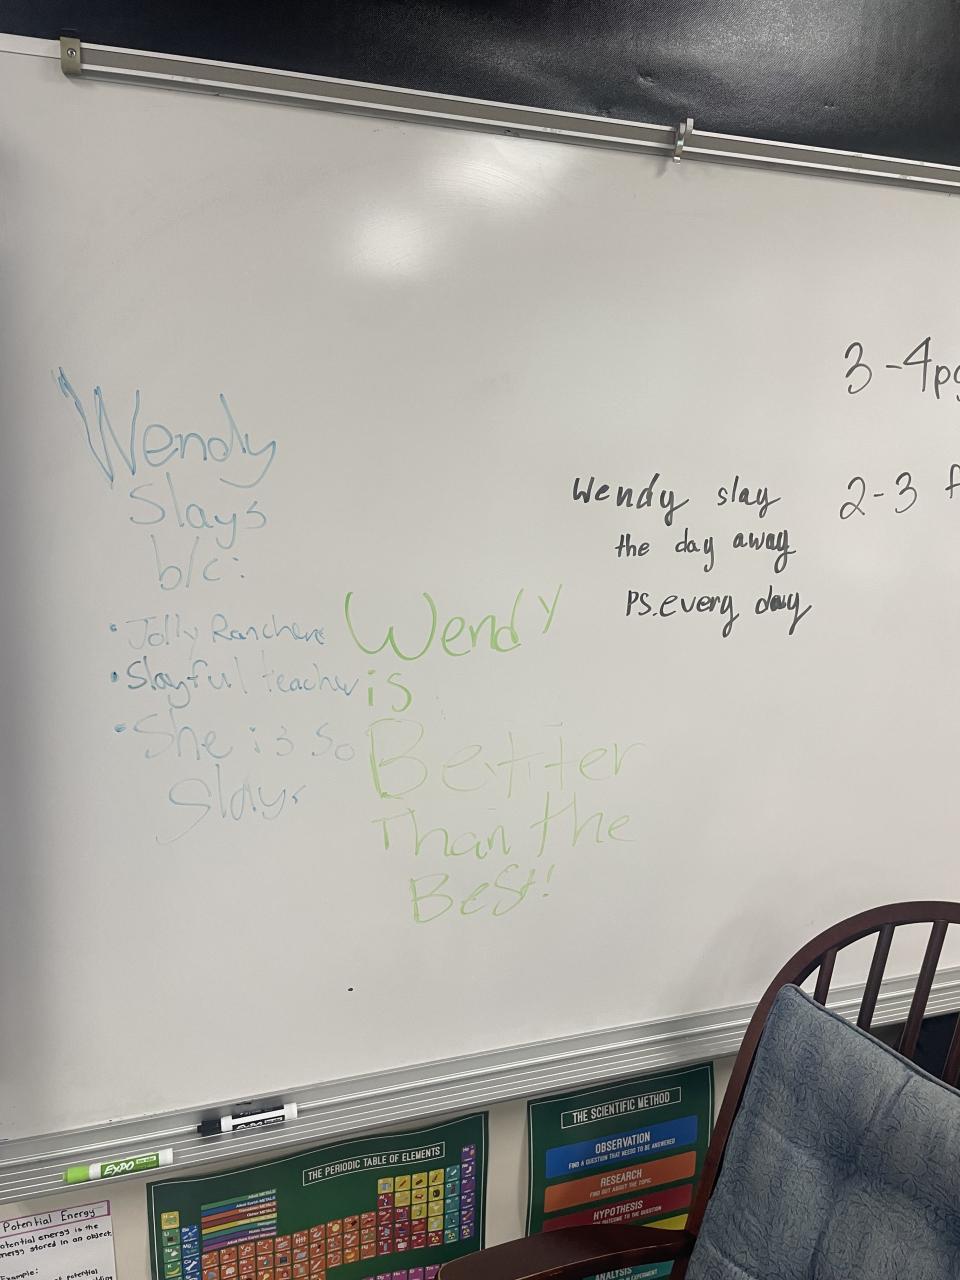 Wendy
Slays
b/c:
• Jolly Ranchers
• Slayful teacher
• She is so
Slays
Wendy
is
Better
Than the
Best!
Wendy slay
the day away
PS. every day
3-4pg
2-3 f
EXPO
EXPO
Potential Energy
otential energy is the
nergy stored in an object.
Example:
THE PERIODIC TABLE OF ELEMENTS
THE SCIENTIFIC METHOD
OBSERVATION
FIND A QUESTION THAT NEEDS TO BE ANSWERED
RESEARCH
FIND OUT ABOUT THE TOPIC
HYPOTHESIS
OUTCOME TO THE QUESTION
ANALYSIS